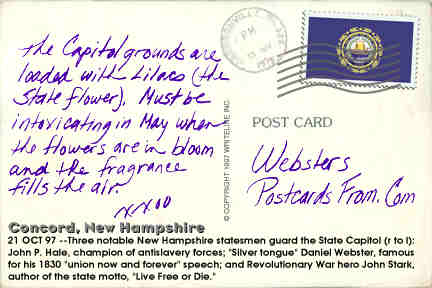 the Capitol grounds are
loaded with Lilacs (the
State flower). Must be
intoxicating in May when
the flowers are in bloom
and the fragrance
fills the air.
xxoo
PM
© COPYRIGHT 1997 WRITELINE INC.
POST CARD
Websters
Postcards From. Com
Concord, New Hampshire
21 OCT 97 --Three notable New Hampshire statesmen guard the State Capitol (r to l):
John P. Hale, champion of antislavery forces; "Silver tongue" Daniel Webster, famous
for his 1830 "union now and forever" speech; and Revolutionary War hero John Stark,
author of the state motto, "Live Free or Die."